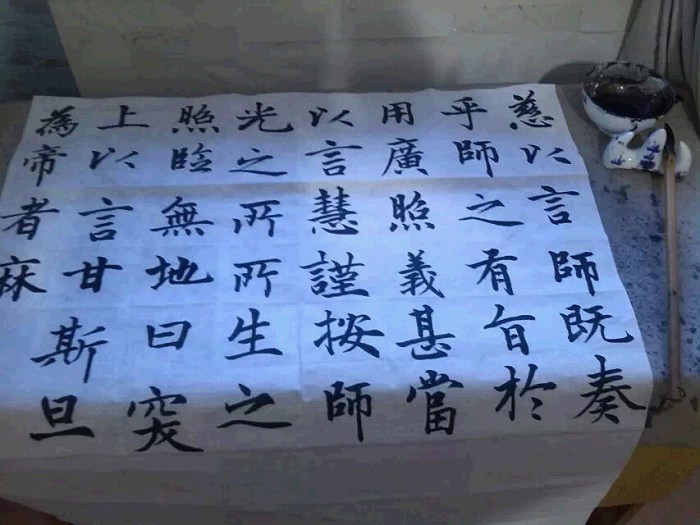 慈以言師既奏
乎師之有旨於
用廣照義甚當
以言慧謹按師
光之所所生之
照臨無地曰突
上以言甘斯旦
為帝者麻